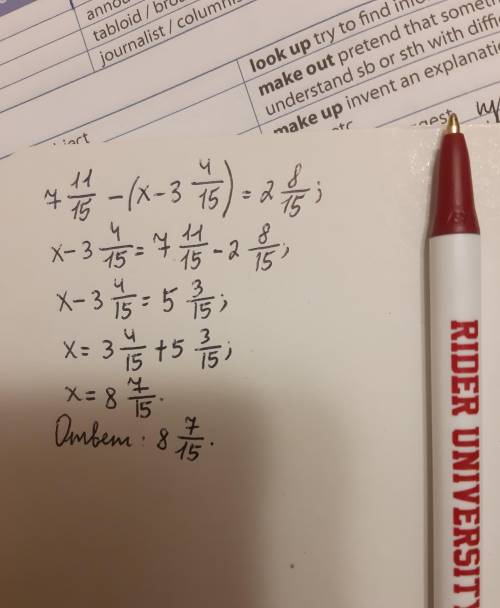 annou
tabloid / bro
journalist / columnis
look up try to find info
make out pretend that someth
understand sb or sth with diffi
make up invent an explanati
etc
ject
gest
7 11/15 - (x - 3 4/15) = 2 8/15;
x - 3 4/15 = 7 11/15 - 2 8/15;
x - 3 4/15 = 5 3/15;
x = 3 4/15 + 5 3/15;
x = 8 7/15.
Ответ: 8 7/15.
RIDER UNIVERSITY